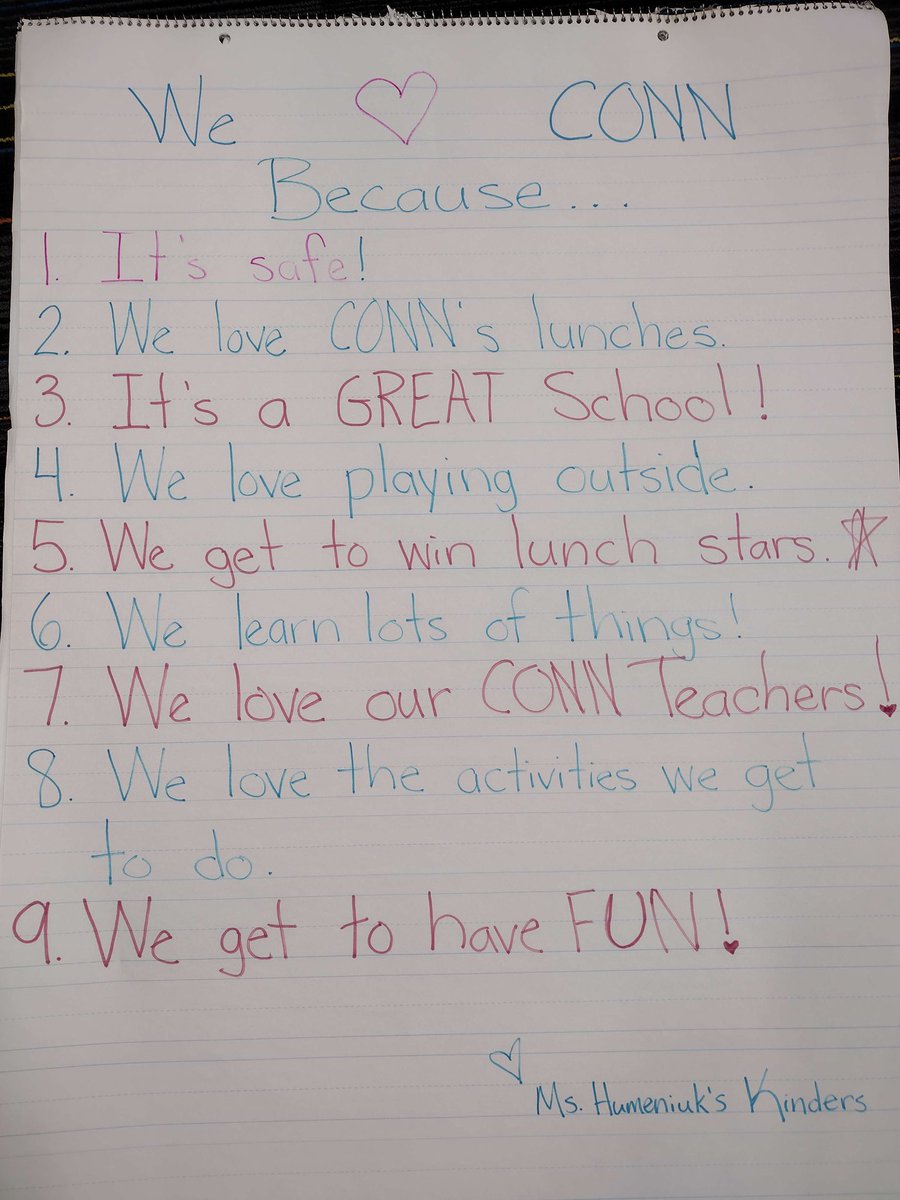 We ♡ CONN
Because...
1. It's safe!
2. We love CONN's lunches.
3. It's a GREAT School!
4. We love playing outside.
5. We get to win lunch stars. ☆
6. We learn lots of things!
7. We love our CONN Teachers!
8. We love the activities we get
to do.
9. We get to have FUN!
♡ Ms. Humeniuk's Kinders